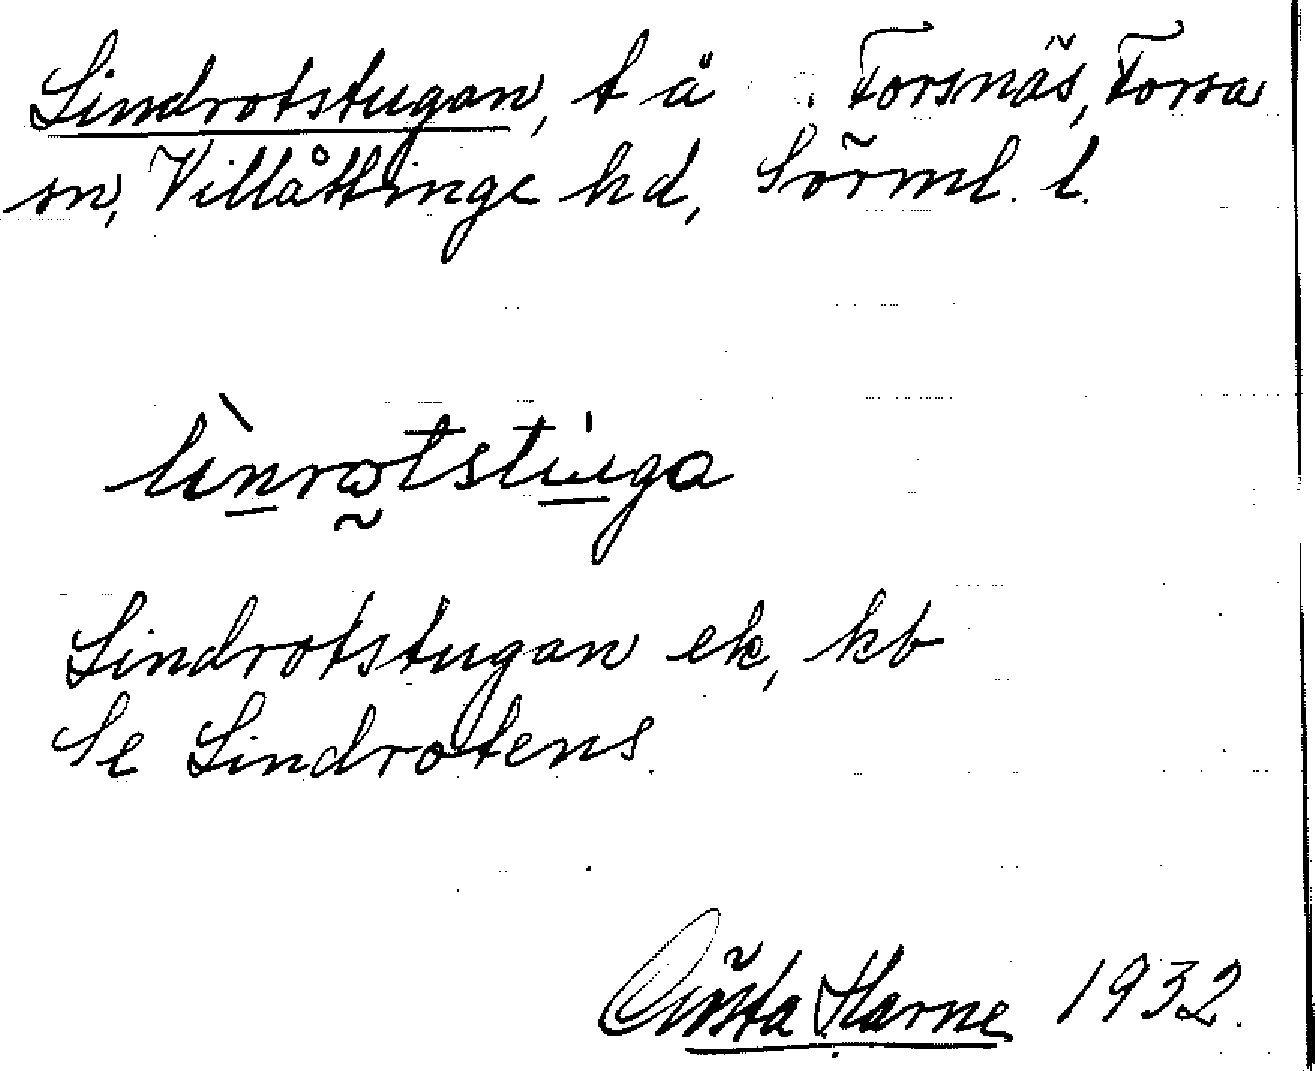 Lindrotstugan, t å Forsnäs, Forsa
sn, Villåttinge hd, Sörml. l.
lìnrωtstu̍ga
Lindrotstugan ek, kb
Se Lindrotens.
Gösta Harne 1932.